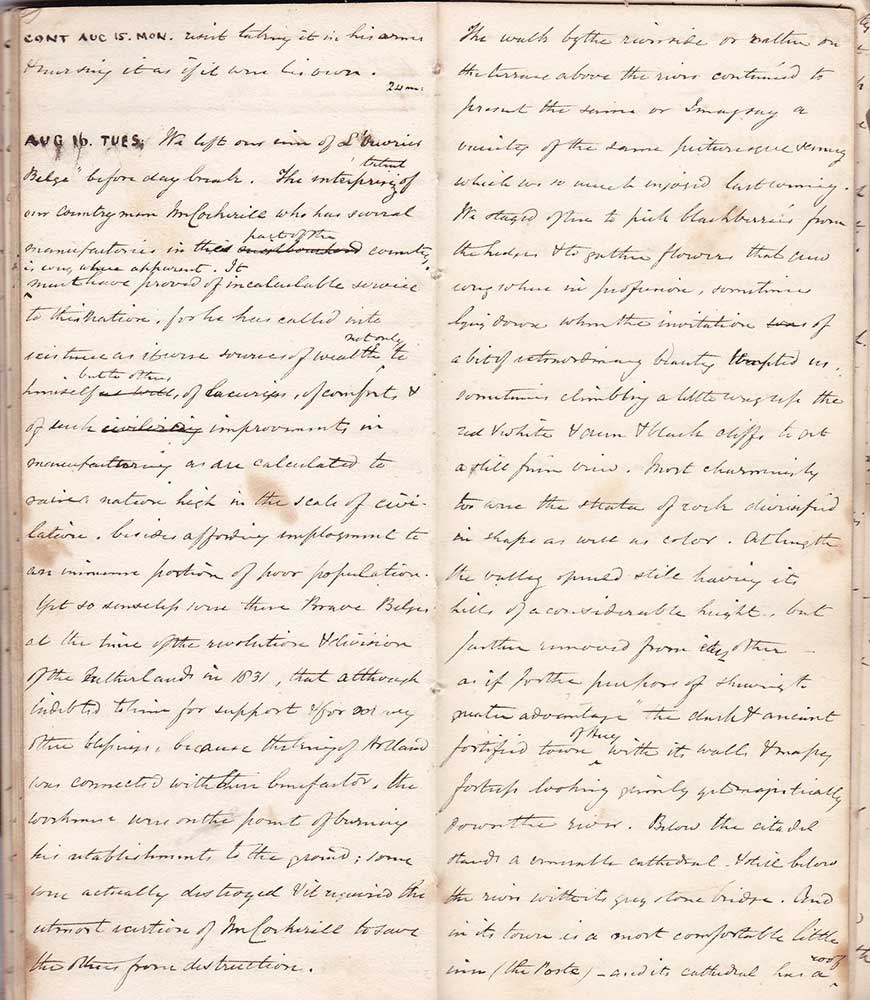 CONT AUG 15. MON. visit taking it in his arms
& nursing it as if it were his own.
24 m:
AUG 16. TUES: We left our inn of L'Ouvries
Belge" before day break. The interprising
talent of
our countryman Mr Cockerill who has several
manufactories in this neighbourhood country
part of the
is every where apparent. It
must have proved of incalculable service
to this nation, for he has called into
existence as it were sources of wealth not only to
himself as well, of luxuries, of comforts &
but to others
of such civilizing improvements in
manufacturing as are calculated to
raise a nation high in the scale of civi-
lation. besides affording employment to
an immense portion of poor population.
Yet so senseless were these Brave Belges
at the time of the revolution & division
of the Netherlands in 1831, that although
indebted to him for support & for every
other blessing, because the King of Holland
was connected with their benefactor, the
workmen were on the point of burning
his establishments to the ground; some
were actually destroyed & it required the
utmost exertion of Mr Cockerill to save
the others from destruction.
The walk by the riverside or rather on
the terrace above the river continued to
present the same or I may say a
variety of the same picturesque scenery
which we so much enjoyed last evening.
We stayed often to pick blackberries from
the hedges & to gather flowers that grew
every where in profusion, sometimes
lying down when the invitation of
a bit of extraordinary beauty tempted us,
sometimes climbing a little way up the
red & white & green & black cliffs to get
a still finer view. Most charmingly
too were the strata of rock diversified
in shape as well as color. At length
the valley opened still having its
hills of a considerable height, but
further removed from each other –
as if for the purpose of shewing to
greater advantage" the dark & ancient
fortified town of Huy with its walls & massy
fortress looking grimly yet majestically
down the river. Below the citadel
stands a venerable cathedral – & still below
the river with its grey stone bridge. And
in its town is a most comfortable little
inn (the Poste) – and its cathedral has a roof